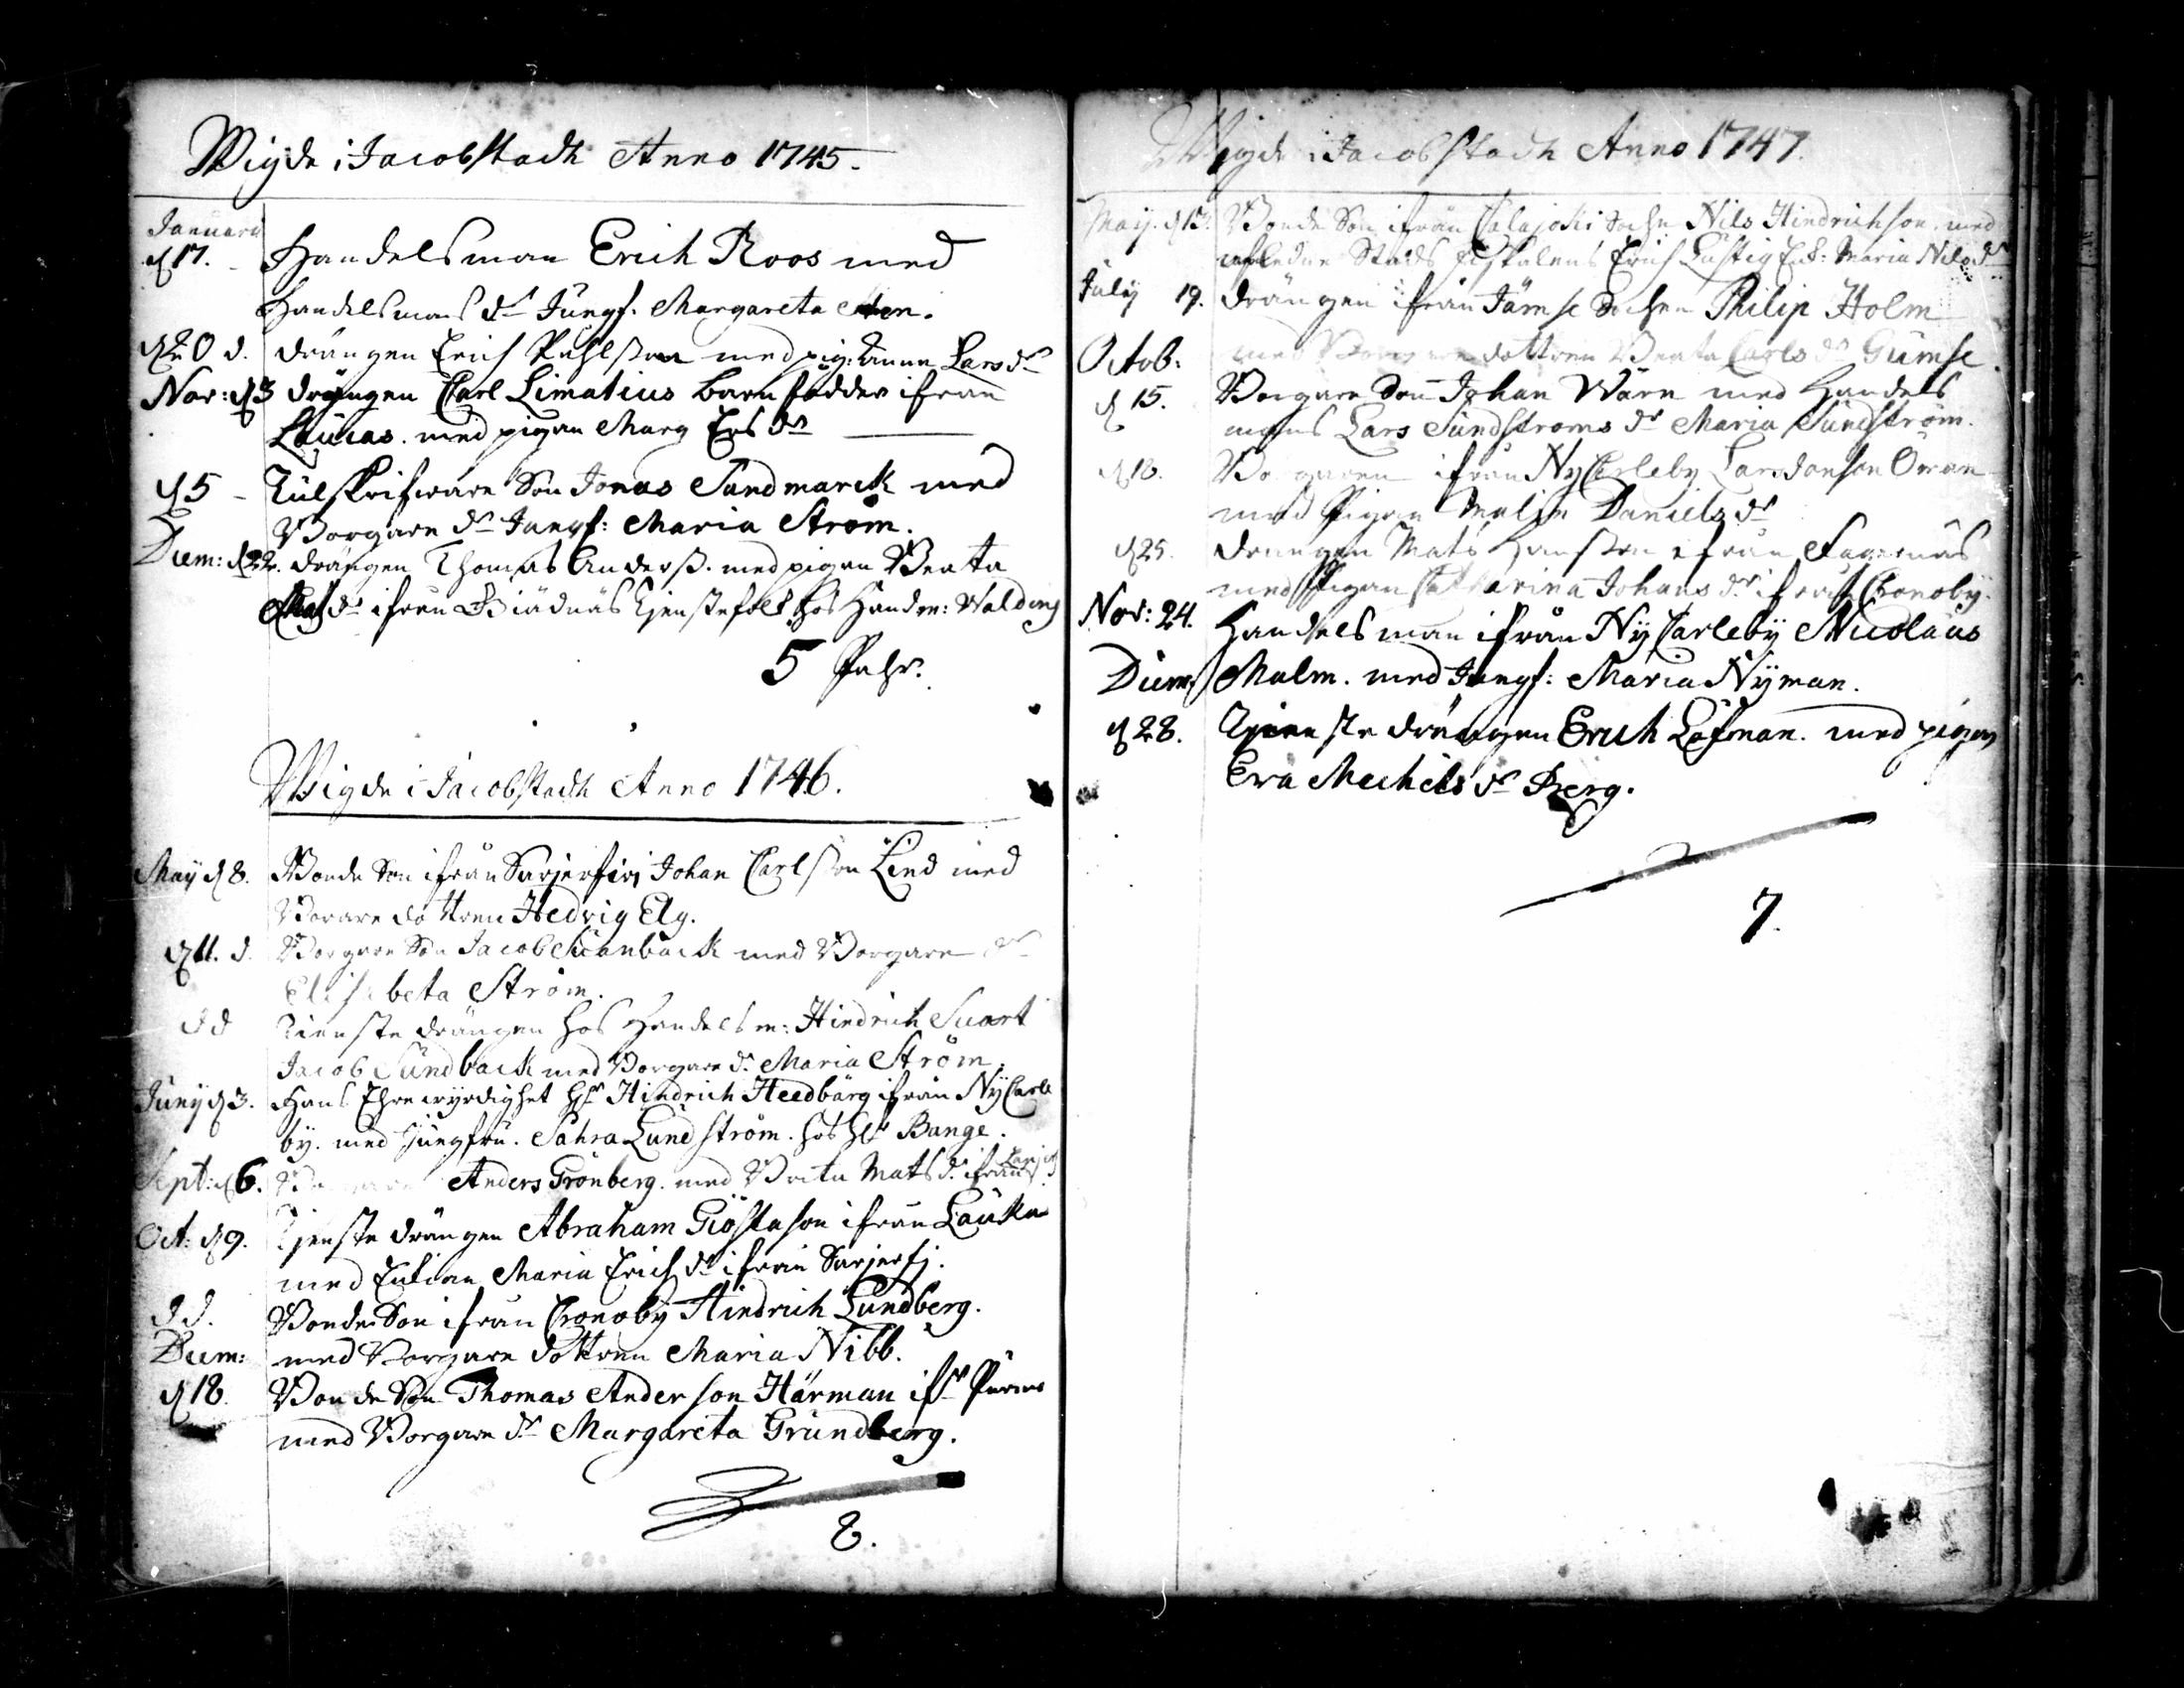 Wigde i Jacobstadh Anno 1745.
Januarii
d 17. Handelsman Erich Roos med
Handelsmans dr Jungf. Margareta
d 20 d. drängen Erich Puhlsson med pig: Anna Lars dr
Nov: d 3 drängen Carl Limatius barnfödder ifrån
Laucas. med pigan Marg Ers dr
d 5 Tulskrifware Son Jonas Sundmarck med
Borgare dr Jungf: Maria Ström.
Decem: d 22. drängen Thomas Anderss. med pigan Beata
dr ifrån Tjenstefolk hos Handm: Walding
5 Pahr.
Wigde i Jacobstadh Anno 1746.
May d 8. Bonde Son ifrån Sarjerfwi Johan Carlsson Lind med
Borare dottren Hedvig Elg.
d 11. d. Borgare Son Jacob Suanback med Borgare dr
Elisabeta Ström.
d d Tienste drängen hos Handelsm: Hindrich Suart
Jacob Sundback med Borgare dr Maria Ström.
Juny d 3. Hans Ehrewyrdighet Hr Hindrich Heedbärg ifrån NyCarle
by. med Jungfru. Sahra Lundström. hos Hr Bange.
Sept: d 6. Anders Grönberg. med Beata Mats dr ifrån
Oct: d 9. Tjenste drängen Abraham Giöstason ifrån Lauka
med Enkian Maria Erichs dr ifrån Sarjerfj.
d d. Bonde Son ifrån Cronoby Hindrich Lundberg.
Decem: med Borgare dottren Maria Nibb.
d 18. Bonde Son Thomas Anderson Härman ifr Purmo
med Borgare dr Margareta Grundberg.
8.
Wigde i Jacobstadh Anno 1747.
May. d 13. Bonde Son ifrån Calajoki Sochn Nils Hindrichson. med
afledne Stads fiskalens Erich Lustig Enk: Maria Nils dr
July 19. drängen ifrån Jämse Sochen Philip Holm
Octob: med Borgare dottren Beata Carls dr Gumse.
d 15. Borgare Son Johan Wärn med Handels
mans Lars Sundstroms dr Maria Sundström.
d 18. Borgaren ifrån NyCarleby Lars Öman
med Pigan Malin Daniels dr
d 25. drängen Mats Hansson ifrån Fagernäs
med Pigan Catharina Johans dr ifrån Cronoby.
Nov: 24. Handelsman ifrån NyCarleby Nicolaus
Decem: Malm. med Jungf: Maria Nyman.
d 28. Tjenste drängen Erich Löfman. med pigan
Eva Mechels dr Berg.
7.